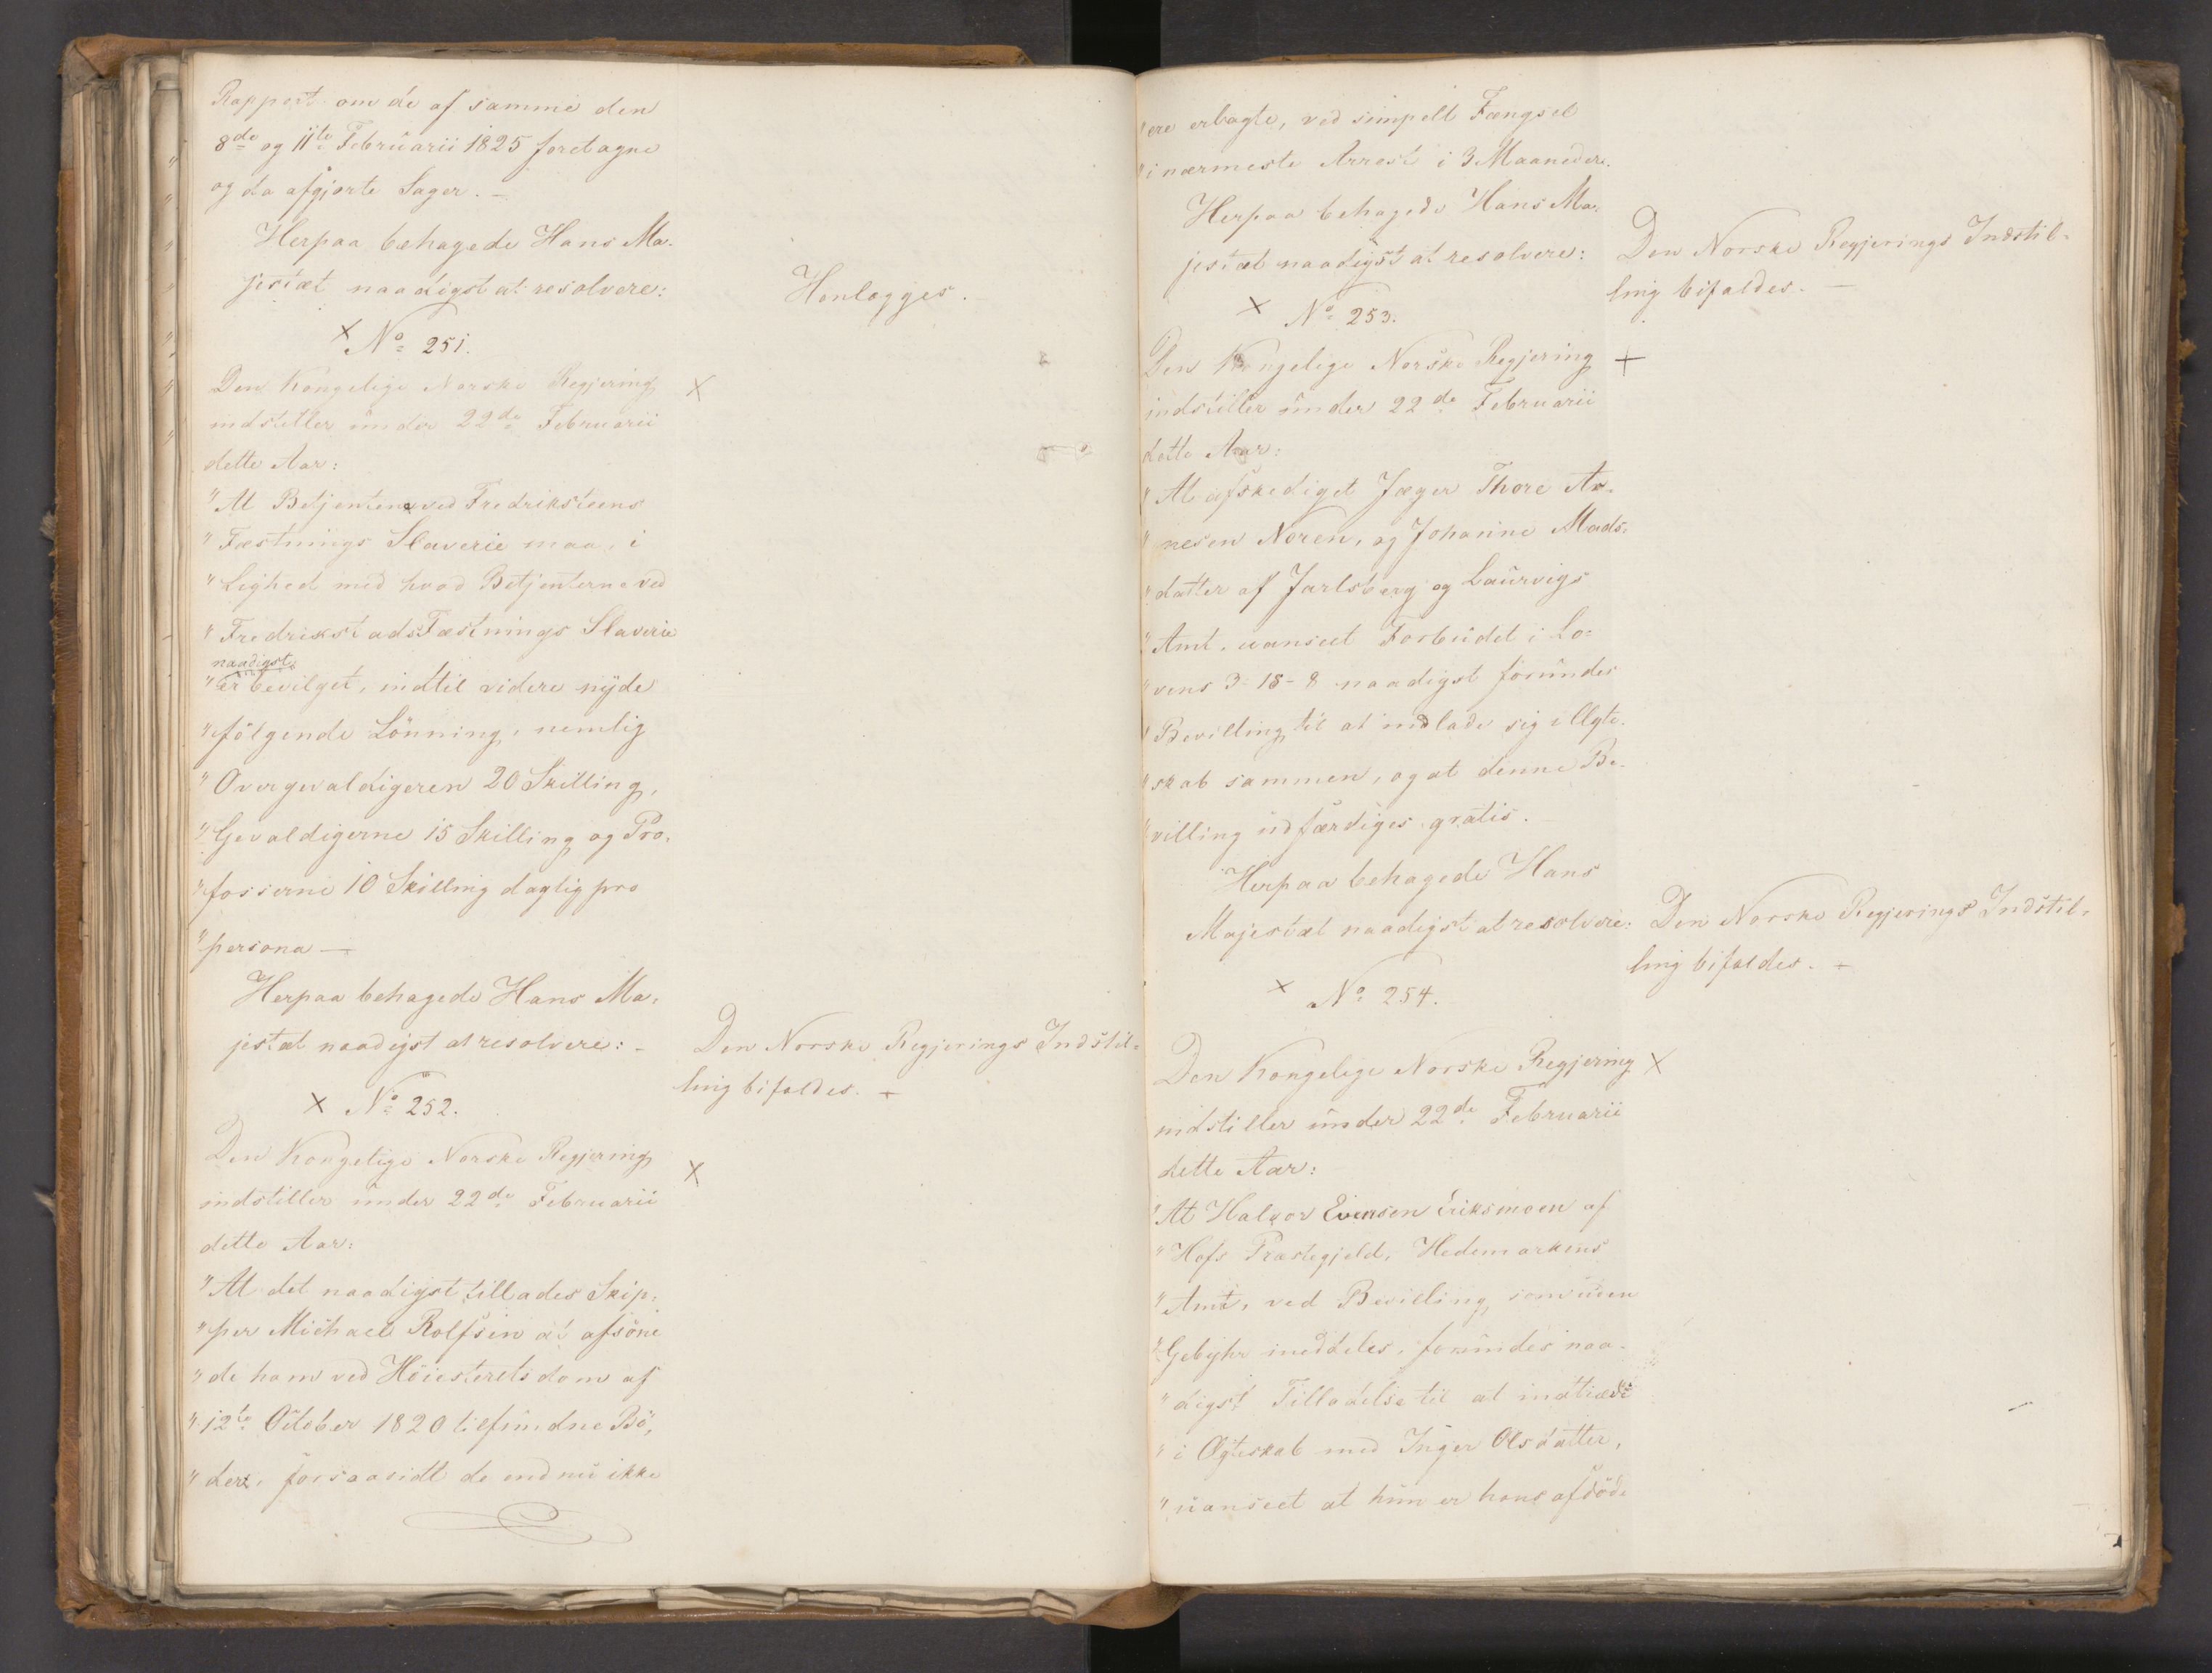 Rapport om de af samme den
8de og 11te Februarii 1825 foretagne
og da afgjorte Sager. –
Herpaa behagede Hans Ma-
jestæt naadigst at resolvere:
Henlægges.
× No 251.
Den Kongelige Norske Regjering ×
indstiller under 22de Februarii
dette Aar:
"At Betjentene ved Fredriksteens
"Fæstnings Slaverie maa, i
"Lighed med hvad Betjenterne ved
"Fredrikstads Fæstnings Slaverie
naadigst
"er bevilget, indtil videre nyde
"følgende Lønning, nemlig
"Overgevaldigeren 20 Skilling,
"Gevaldigerne 15 Skilling og Pro-
"fosserne 10 Skilling daglig pro
"persona –
Herpaa behagede Hans Ma-
jestæt naadigst at resolvere: –
Den Norske Regjerings Indstil-
ling bifaldes. –
× No 252.
Den Kongelige Norske Regjering ×
indstiller under 22de Februarii
dette Aar:
"At det naadigst tillades Skip-
"per Michael Rolfsen at afsone
"de ham ved Høiesteretsdom af
"12te October 1820 tilfundne Bø-
"der, forsaavidt de endnu ikke
"ere erlagte, ved simpelt Fængsel
"i nærmeste Arrest i 3 Maaneder.
Herpaa behagede Hans Ma-
jestæt naadigst at resolvere:
Den Norske Regjerings Indstil-
ling bifaldes. –
× No 253.
Den Kongelige Norske Regjering ×
indstiller under 22de Februarii
dette Aar:
"At afskediget Jæger Thore Ar-
"nesen Noren, og Johanne Mads-
"datter af Jarlsberg og Laurvigs
"Amt, uanseet Forbudet i Lo-
"vens 3-18-8 naadigst forundes
"Bevilling til at indlade sig i Ægte-
"skab sammen, og at denne Be-
"villing udfærdiges gratis. –
Herpaa behagede Hans
Majestæt naadigst at resolvere:
Den Norske Regjerings Indstil-
ling bifaldes. –
× No 254.
Den Kongelige Norske Regjering ×
indstiller under 22de Februarii
dette Aar:
"At Halvor Evensen Eriksmoen af
"Hofs Præstegjeld, Hedemarkens
"Amt, ved Bevilling, som uden
"Gebyhr meddeles, forundes naa-
"digst Tilladelse til at indtræde
"i Ægteskab med Inger Olsdatter,
"uanseet at hun er hans afdøde